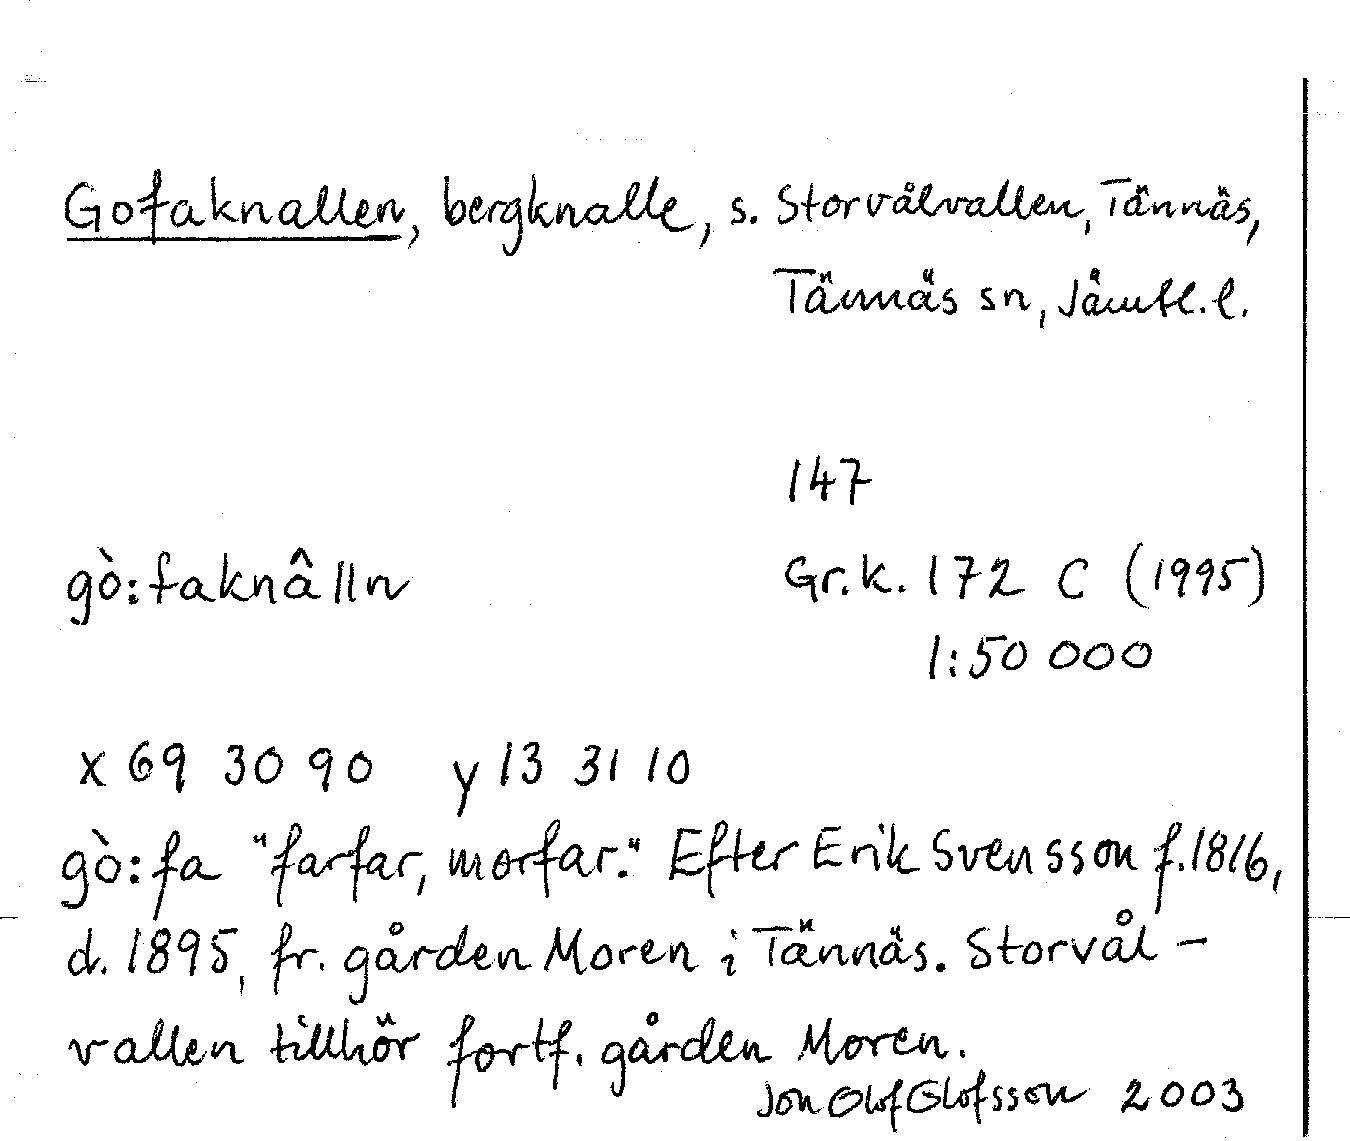 Gofaknallen, bergknalle, s. Storvålvallen, Tännäs,
Tännäs sn, Jämtl. l.
147
gò:faknâlln
Gr.k. 172 C (1995)
1:50 000
x 69 30 90 y 13 31 10
gò:fa "farfar, morfar." Efter Erik Svensson f. 1816,
d. 1895, fr. gården Moren i Tännäs. Storvål-
vallen tillhör fortf. gården Moren.
Jon Olof Olofsson 2003